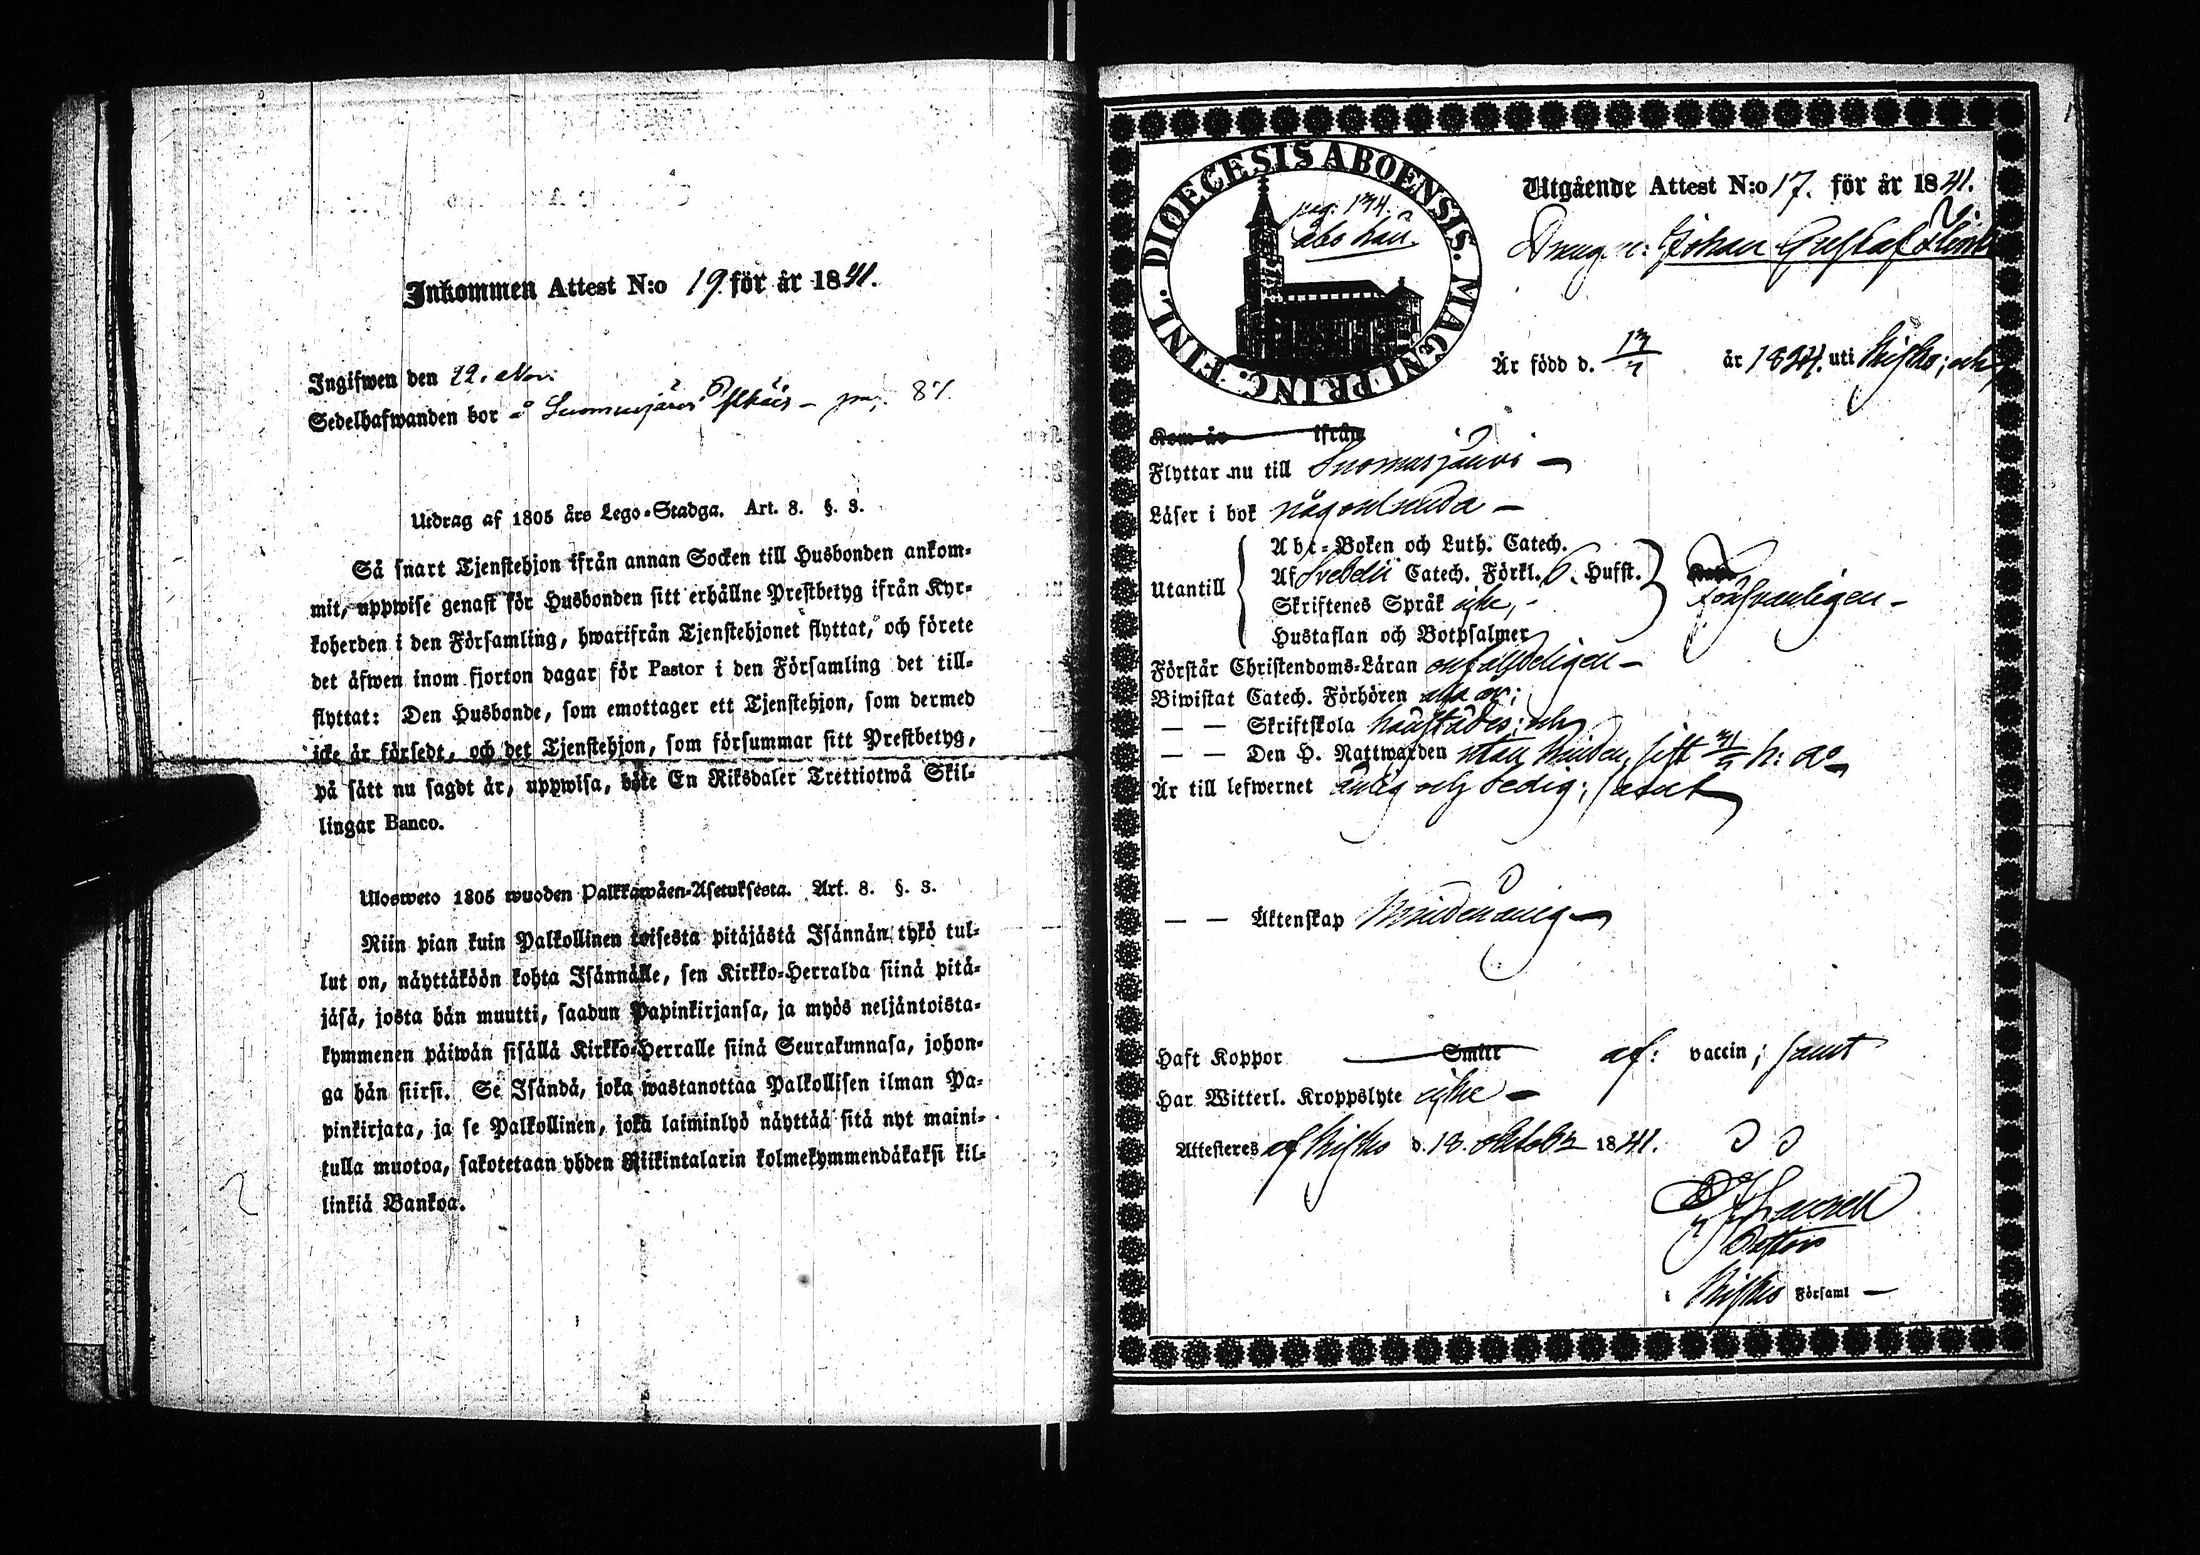 Inkommen Attest N:o 19. för år 1841.
Ingifwen den 22. Nov:
Sedelhafwanden bor å Suomusjärvi pag. 87.
Utdrag af 1805 års Lego-Stadga. Art. 8. §. 3.
Så snart Tjenstehjon ifrån annan Socken till Husbonden ankom-
mit, uppwise genast för Husbonden sitt erhållne Prestbetyg ifrån Kyr-
koherden i den Församling, hwarifrån Tjenstehjonet flyttat, och förete
det äfwen inom fjorton dagar för Pastor i den Församling det till-
flyttat: Den Husbonde, som emottager ett Tjenstehjon, som dermed
icke är försedt, och det Tjenstehjon, som försummar sitt Prestbetyg,
på sätt nu sagdt är, uppwisa, böte En Riksdaler Trettiotwå Skil-
lingar Banco.
Ulosweto 1805 wuoden Palkkawäen-Asetuksesta. Art. 8. §. 3.
Niin pian kuin Palkollinen toisesta pitäjästä Isännän tykö tul-
lut on, näyttäköön kohta Isännälle, sen Kirkko-Herralda siinä pitä-
jäsä, josta hän muutti, saadun Papinkirjansa, ja myös neljäntoista-
kymmenen päiwän sisällä Kirkko-Herralle siinä Seurakunnasa, johon-
ga hän siirsi. Se Isändä, joka wastanottaa Palkollisen ilman Pa-
pinkirjata, ja se Palkollinen, joka laiminlyö näyttää sitä nyt maini-
tulla muotoa, sakotetaan yhden Riikintalarin kolmekymmendäkaksi kil-
linkiä Bankoa.
DIOECESIS ABOENSIS. MAGNI PRINC. FINL.
pag. 134.
Utgående Attest N:o 17. för år 1841.
Drängen: Johan Gustaf
Är född d. 13/7 år 1824. uti Kisko; och
Kom år ifrån
Flyttar nu till Suomusjärvi
Läser i bok någorlunda
Utantill
Abc-Boken och Luth. Catech.
Af Svebelii Catech. Förkl. 6. Hufst.
Skriftenes Språk icke,
Hustaflan och Botpsalmer
Försvarligen
Förstår Christendoms-Läran enfaldeligen
Biwistat Catech. Förhören
— — Skriftskola och
— — Den H. Nattwarden utan hinder, sist h: a:
Är till lefwernet ärlig och sedig; samt
— — Äktenskap Minderårig
Haft Koppor Smitt af: vaccin; samt
Har Witterl. Kroppslyte icke
Attesteres af Kisko d. 13. Oktober 1841.
Pastor
i Kisko Församl